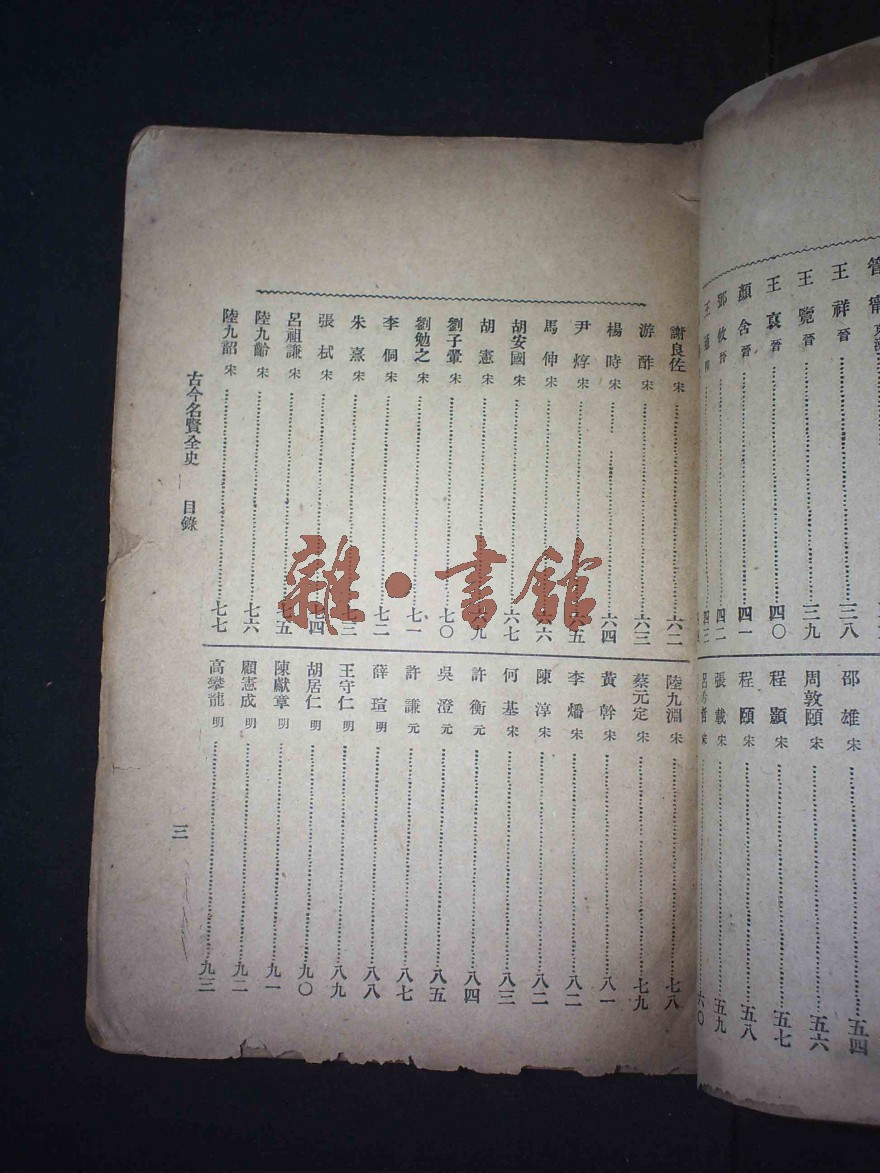 管寧
王祥 晉 三八
王覽 晉 三九
王裒 晉 四〇
顏含 晉 四一
鄧攸 晉 四二
王通 四三
邵雄 宋 五四
周敦頤 宋 五六
程顥 宋 五七
程頤 宋 五八
張載 宋 五九
宋 六〇
謝良佐 宋 六二
游酢 宋 六三
楊時 宋 六四
尹焞 宋 六五
馬伸 宋 六六
胡安國 宋 六七
胡憲 宋 六九
劉子翬 宋 七〇
劉勉之 宋 七一
李侗 宋 七二
朱熹 宋 七三
張栻 宋 七四
呂祖謙 宋 七五
陸九齡 宋 七六
陸九韶 宋 七七
陸九淵 宋 七八
蔡元定 宋 七九
黃幹 宋 八一
李燔 宋 八二
陳淳 宋 八二
何基 宋 八三
許衡 元 八四
吳澄 元 八五
許謙 元 八七
薛瑄 明 八八
王守仁 明 八九
胡居仁 明 九〇
陳獻章 明 九一
顧憲成 明 九二
高攀龍 明 九三
古今名賢全史 目錄
三
雜·書館